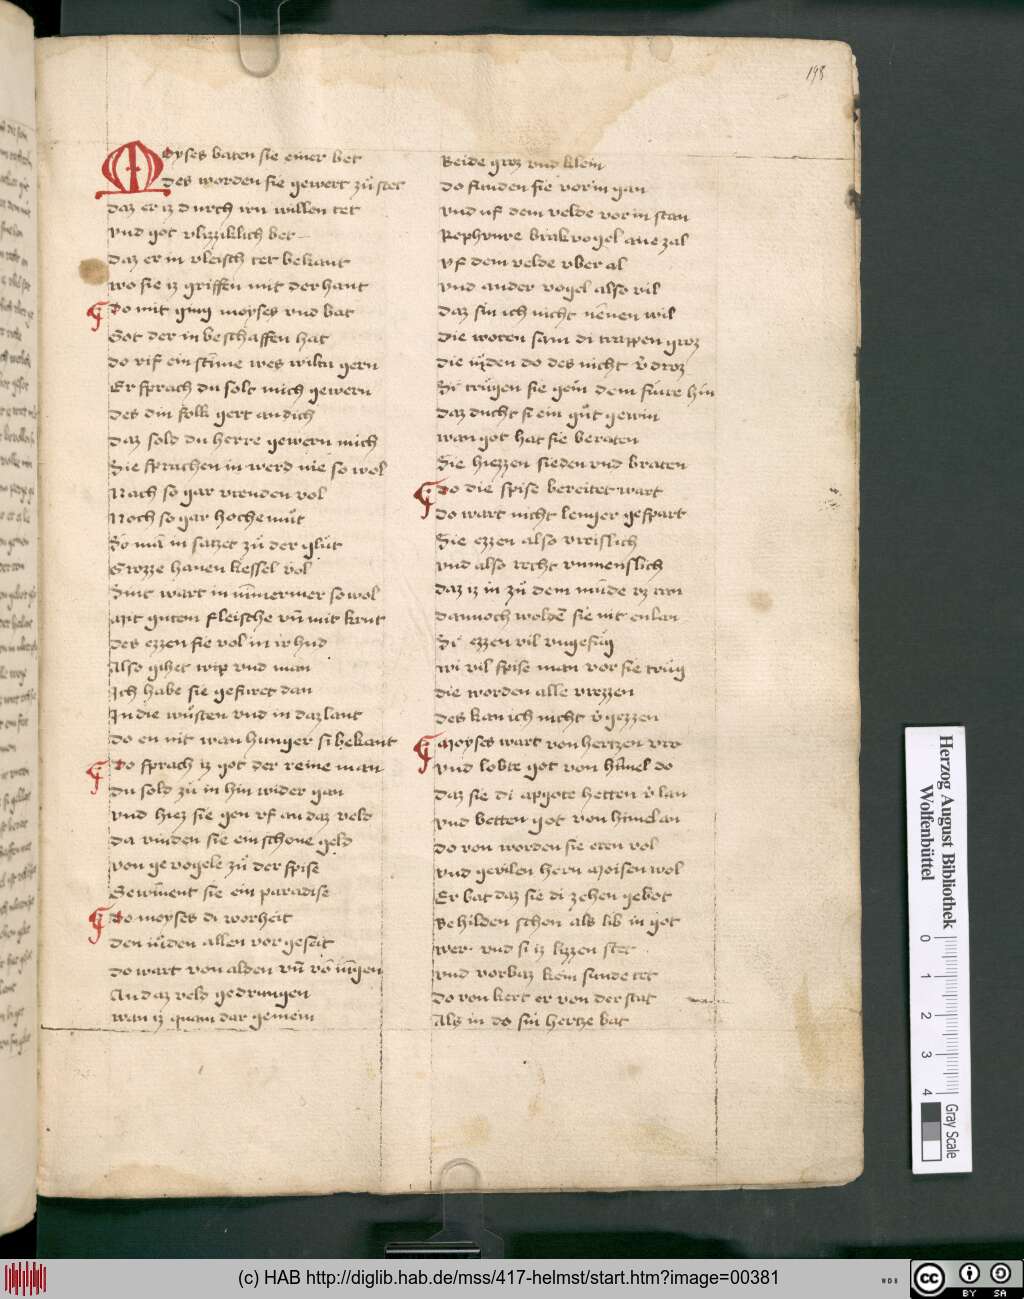 198
Moyses baten sie einer bet
Des worden sie gewert zů stet
Daz er iz durch irn willen tet
Vnd got vlizziklich bet
Daz er in vleisch tet bekant
Wo sie iz griffen mit der hant
Do mit ging moyses vnd bat
Got der in beschaffen hat
Do rif ein stīme wes wiltu gern
Er sprach du solt mich gewern
Des din folk gert an dich
Daz sold du herre gewern mich
Sie sprachen in werd nie so wol
Nach so gar vrenden vol
Noch so gar hochemůt
So mā in satzet zů der glůt
Grozze hauen kessel vol
Smit wart in nīmermer so wol
Mit gutem fleische vn̄ mit krut
Des ezzen sie vol in ir hud
Also gihet wip vnd man
Ich habe sie gefuret dan
In die wůsten vnd in daz lant
Do en nit wan hunger si bekant
Do sprach iz got der reine man
Du sold zů in hin wider gan
Vnd hiez sie gen vf an daz veld
Da vinden sie ein schone geld
Von gevogele zů der spise
Gewīnent sie ein paradise
Do moyses di worheit
Den iůden allen vor geseit
Do wart von alden vn̄ vō iūgen
An daz veld gedrungen
Wan iz quam dar gemein
Beide groz vnd klein
Do funden sie vor in gan
Vnd uf dem velde vor in stan
Rephunre brakvogel ane zal
Vf dem velde vber al
Vnd ander vogel also vil
Daz sin ich nicht nēnen wil
Die woren sam di trappen groz
Die iůden do des nicht v̄droz
Si trůgen sie gein dem fūre hin
Daz ducht si ein gůt gewin
Wan got hat sie beraten
Sie hiezzen sieden vnd braten
Do die spise bereitet wart
Do wart nicht lenger gespart
Sie ezzen also vreislich
Vnd also recht vnmenslich
Daz iz in zů dem mūde vz ran
Dannoch woldē sie nit enlan
Si ezzen vil vngefůg
Wi vil spise man vor sie trůg
Die worden alle vrezzen
Des kan ich nicht v̄gezzen
Moyses wart von hertzen vro
Vnd lobte got von himel do
Daz sie di apgote hetten v̄lan
Vnd betten got von himel an
Do von worden sie eren vol
Vnd gevilen hern Moisen wol
Er bat daz sie di zehen gebot
Behilden schon als lib in got
Wer vnd si iz lizzen stet
Vnd vorbaz kein sunde tet
Do von kert er von der stat
Als in do sin hertze bat
Herzog August Bibliothek
Wolfenbüttel
0 1 2 3 4
Gray Scale
(c) HAB http://diglib.hab.de/mss/417-helmst/start.htm?image=00381
WDB
cc
BY SA